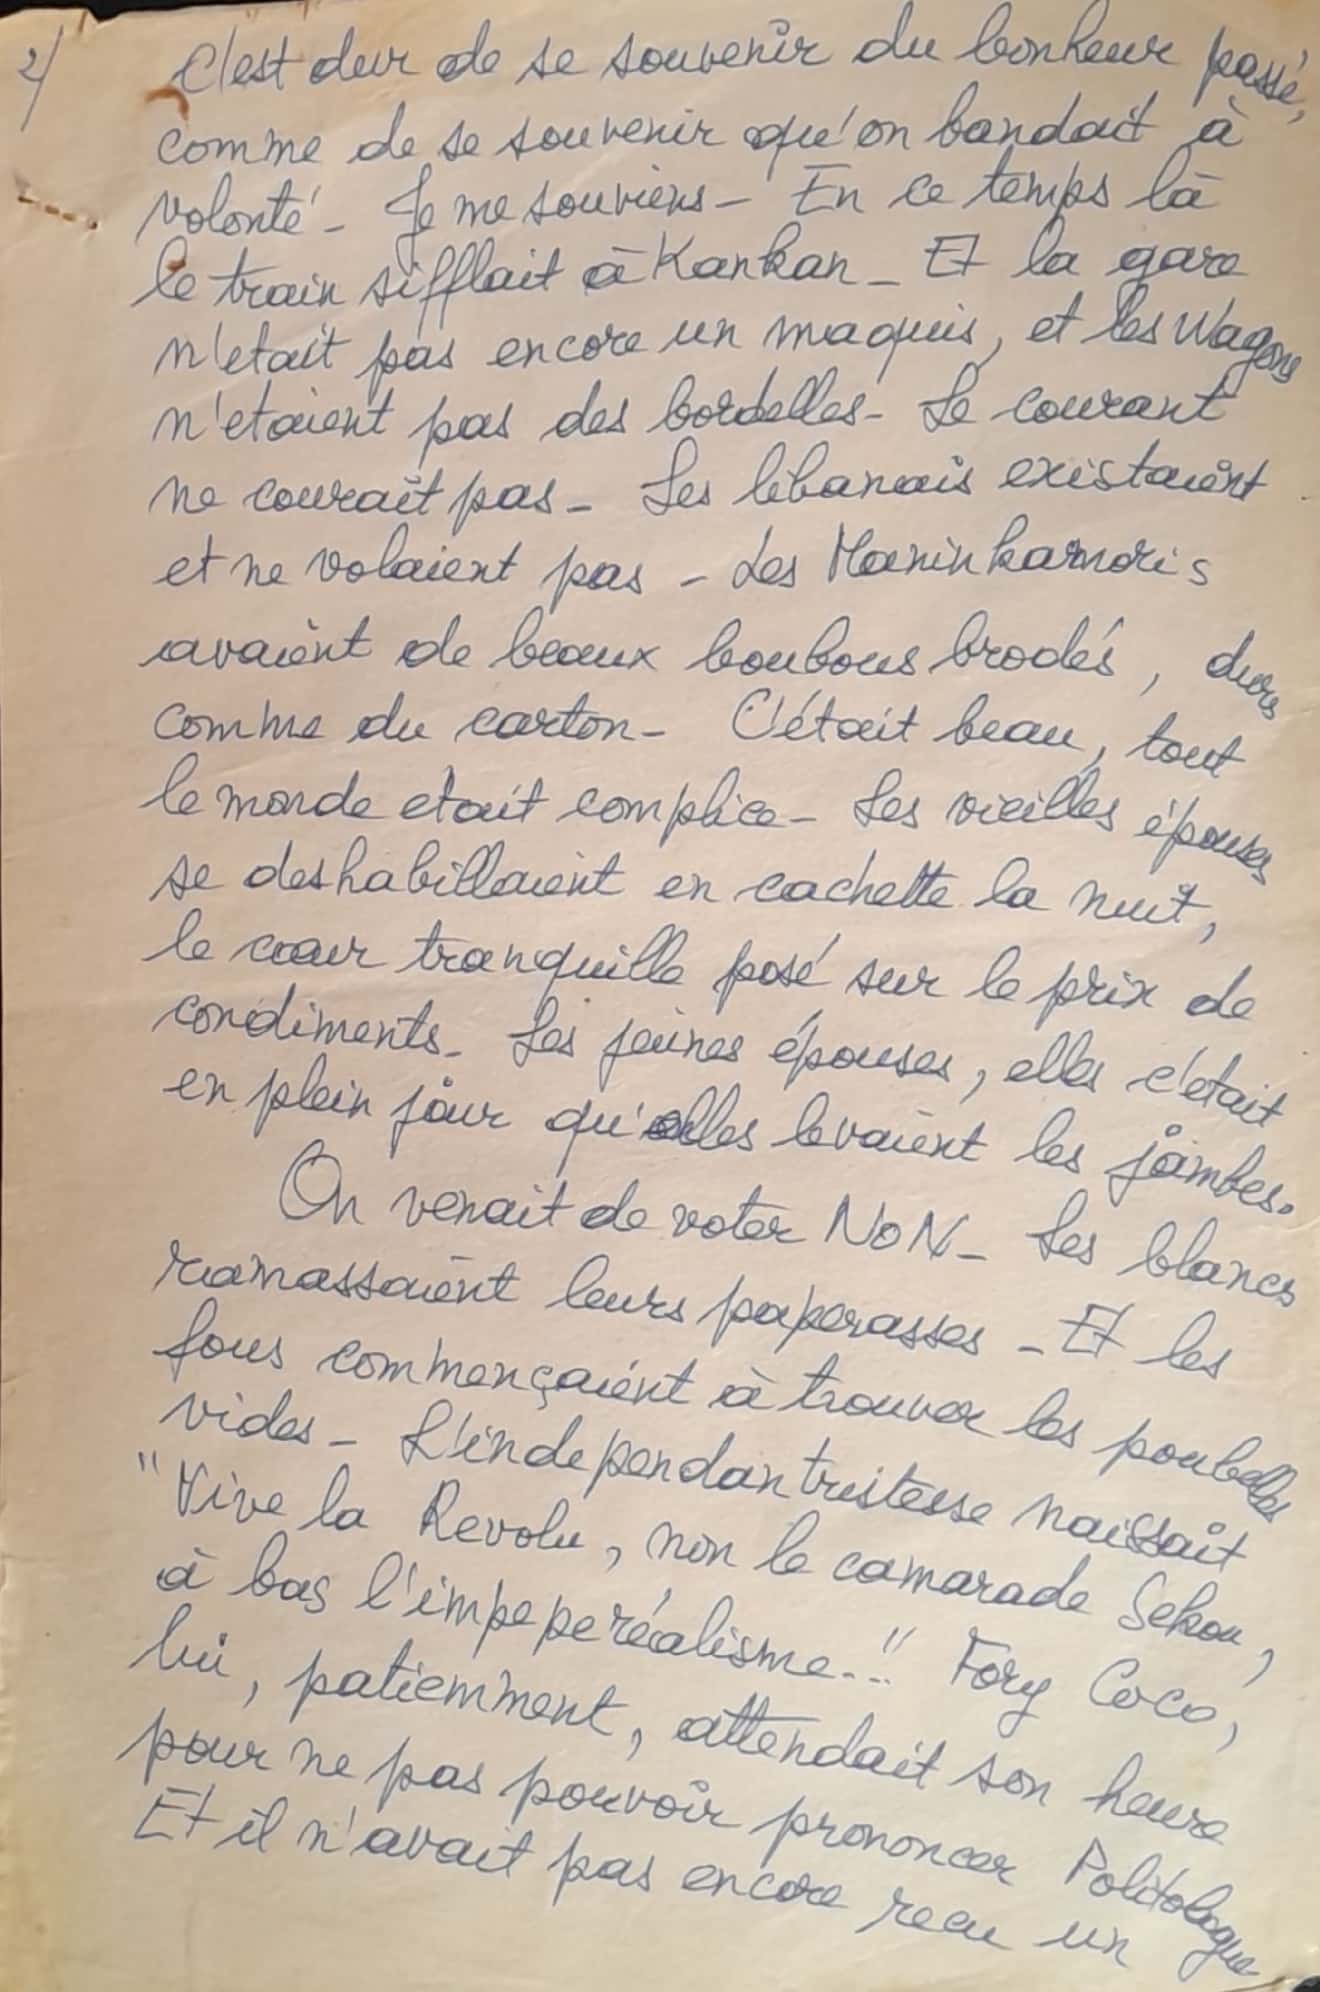 2/ C'est dur de se souvenir du bonheur passé,
comme de se souvenir qu'on bandait à
volonté - Je me souviens - En ce temps là
le train sifflait à Kankan - Et la gare
n'etait pas encore un maquis, et les Wagons
n'etaient pas des bordelles - Le courant
ne courait pas - Les libanais existaient
et ne volaient pas - Les Maninkamoris
avaient de beaux boubous brodés, durs
comme du carton - C'était beau, tout
le monde etait complice - Les vieilles épouses
se deshabillaient en cachette la nuit,
le cœur tranquille posé sur le prix de
condiments - Les jeunes épouses, elles c'etait
en plein jour qu'elles levaient les jambes.
On venait de voter NON - Les blancs
ramassaient leurs paperasses - Et les
fous commençaient à trouver les poubelles
vides - L'independantristesse naissait
"Vive la Revolu, non le camarade Sekou,
à bas l'impeperéalisme..!" Fory Coco,
lui, patiemment, attendait son heure
pour ne pas pouvoir prononcer Politologue
Et il n'avait pas encore recu un